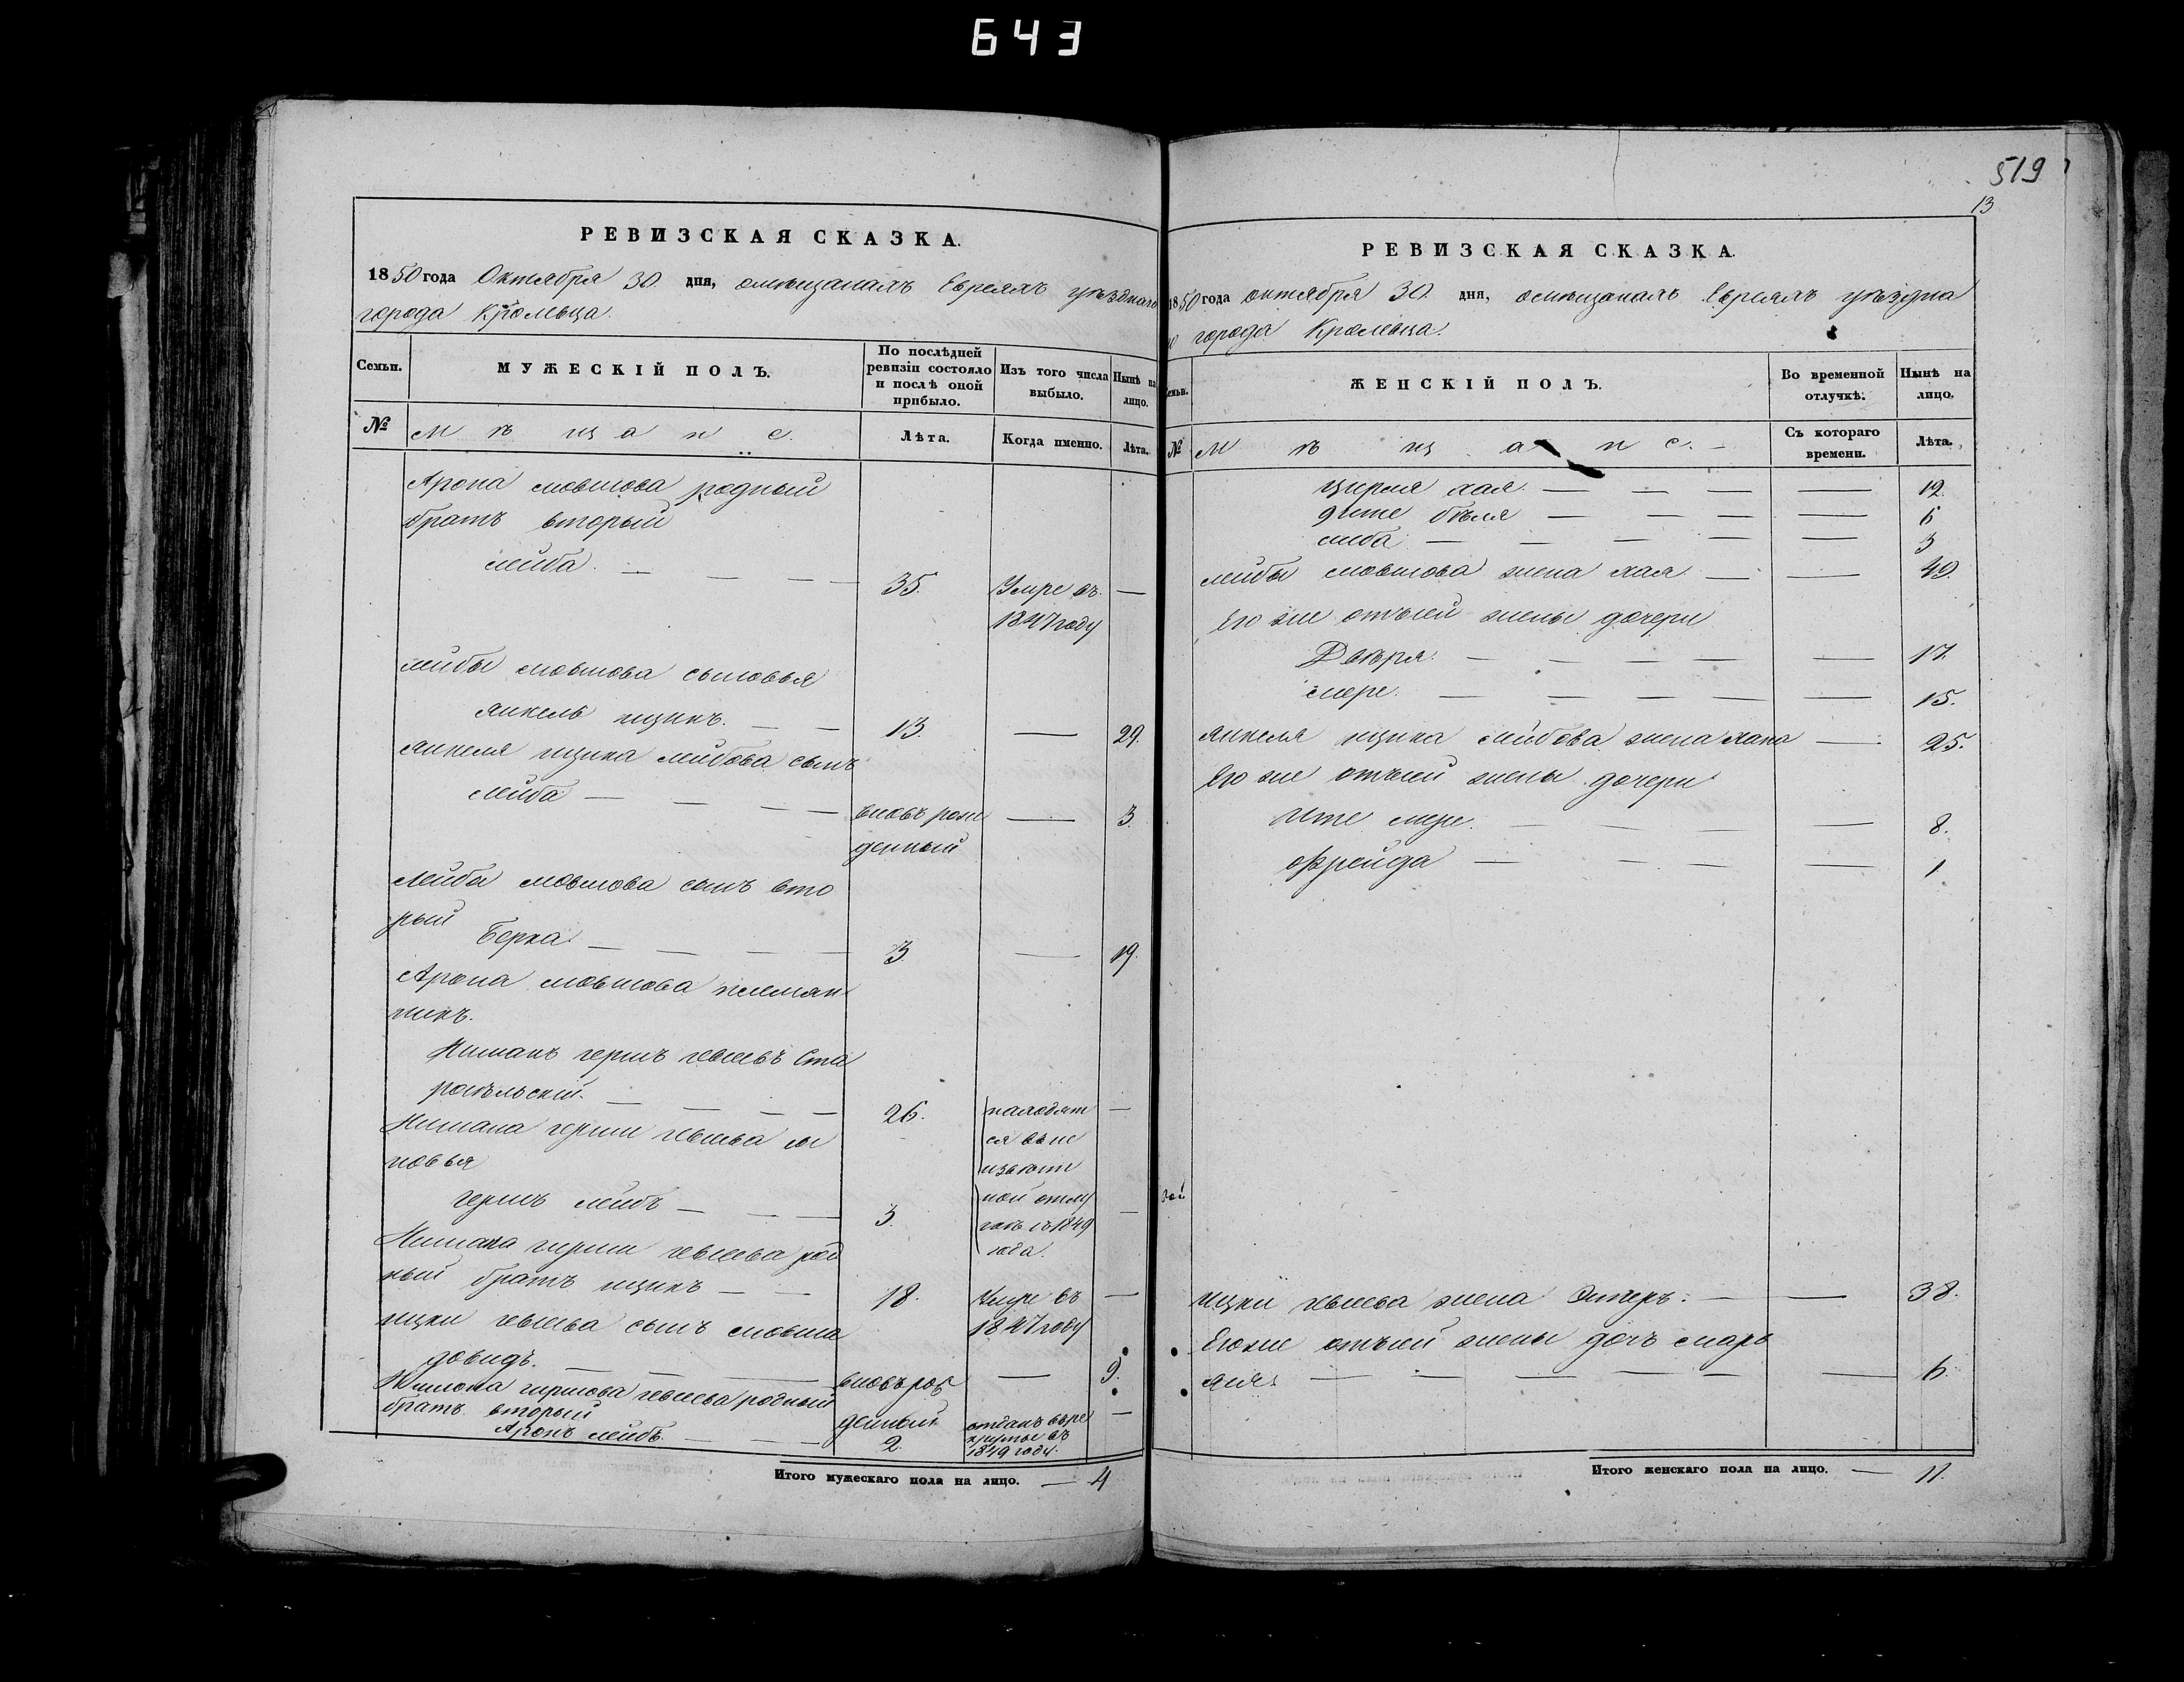 643
РЕВИЗСКАЯ СКАЗКА.
1850 года Октября 30. дня, омещанахъ Евреяхъ уѣзднаго
города Кролевца.
Семьи.
МУЖЕСКІЙ ПОЛЪ.
По послѣдней ревизіи состояло и послѣ оной прибыло.
Изъ того числа выбыло.
Нынѣ на лицо.
№
Мѣщане.
Лѣта.
Когда именно.
Лѣта.
Арона мовшова родный
братъ вторый
лейба. 35. Умре въ. —
1847 году
лейбы мовшова сыновья
янкель ицикъ. 13. — 29.
янкеля ицика лейбова сынъ
лейба вновь рож — 3.
денный
лейбы мовшова сынъ вто
рый
Берка 3 — 19.
Арона мовшова племян
никъ.
гершъ Ста
26. находят —
ся въ не
извѣст
новья
гершъ лейбъ 3. ной отлу —
чкѣ съ 1849
года.
род
ный братъ ицикъ 18. Умре въ —
1847 году
ицки сынъ мовша
довидъ. вновь рож — 9.
родный
братъ вторый денный
Аронъ лейбъ. 2. отданъ въ ре —
круты въ
1849 году.
Итого мужескаго пола на лицо. — 4
519
13
РЕВИЗСКАЯ СКАЗКА.
1850 года октября 30. дня, омещанахъ Евреяхъ уѣздна
го города Кролевца.
Семьи.
ЖЕНСКІЙ ПОЛЪ.
Во временной отлучкѣ.
Нынѣ на лицо.
№
Мѣщане.
Съ котораго времени.
Лѣта.
цирля хая. — 12.
бѣля — 6
либа — 3
лейбы мовшова жена хая — 49.
Его же отъ сей жены дочери
Двѣря. — 17.
мере. — 15.
янкеля ицика лейбова жена хана — 25.
Его же отъ сей жены дочери
мере. — 8.
фрейда — 1
ицки жена Эстеръ. — 38.
Его же отъ сей жены дочь марь
яся. — 6.
Итого женскаго пола на лицо. — 11.